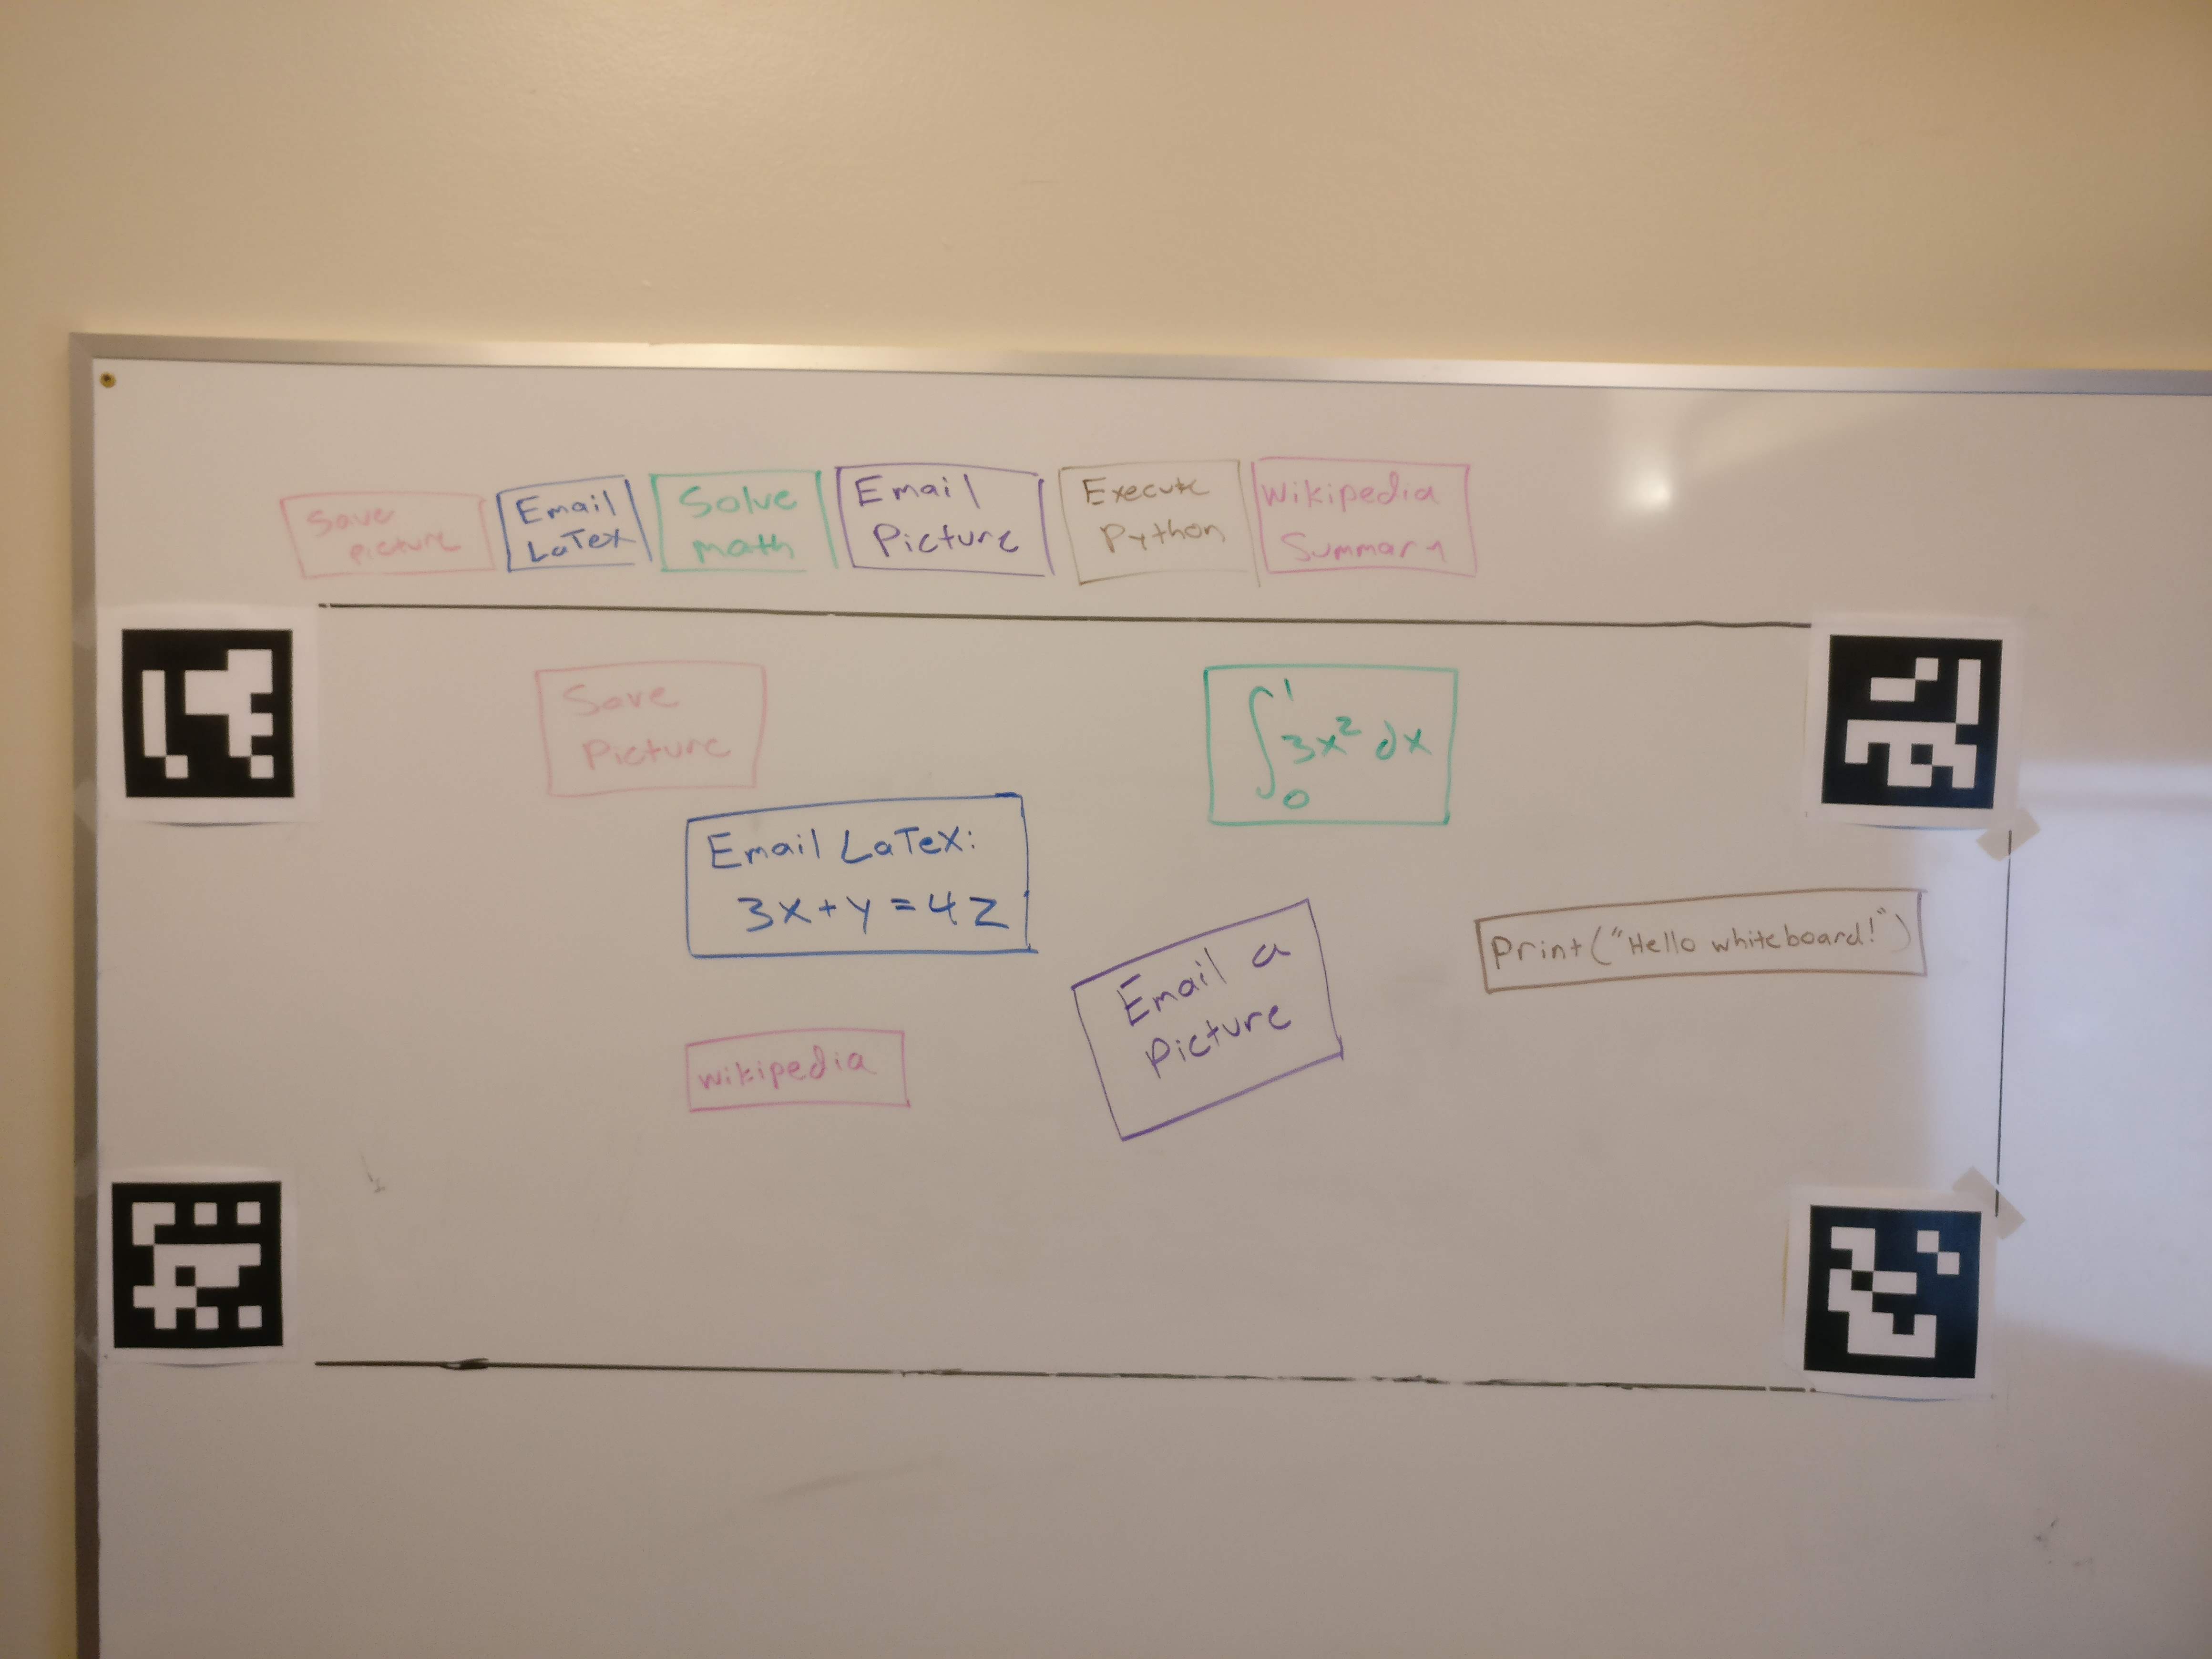 Save
picture
Email
LaTex
Solve
math
Email
Picture
Execute
Python
Wikipedia
Summary
Save
Picture
∫₀¹ 3x² dx
Email LaTex:
3x+y=4z
Email a
Picture
Print("Hello whiteboard!")
wikipedia